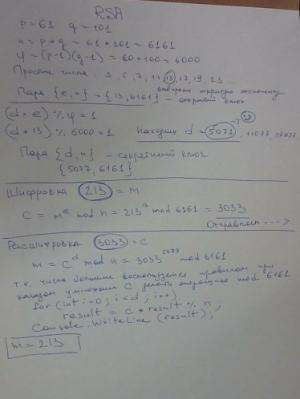 RSA
p = 61 q = 101
n = p * q = 61 * 101 = 6161
φ = (p-1)(q-1) = 60 * 100 = 6000
Простые числа: 3, 5, 7, 11, 13, 17, 19, 23
выбираем открытую экспоненту
Пара {e, n} = {13, 6161} - открытый ключ
(d * e) % φ = 1
(d * 13) % 6000 = 1 Находим d = 5077, 11077, 17077
Пара {d, n} - секретный ключ
{5077, 6161}
Шифровка 213 = m
C = mᵉ mod n = 213 mod 6161 = 3033
Отправляем --->
Расшифровка 3033 = C
m = C^d mod n = 3033^5077 mod 6161
т.к. число большое воспользуемся правилом при
каждом умножении C делать mod 6161
for (int i=0; i<d; i++)
result = c * result % n;
Console.WriteLine(result);
m = 213